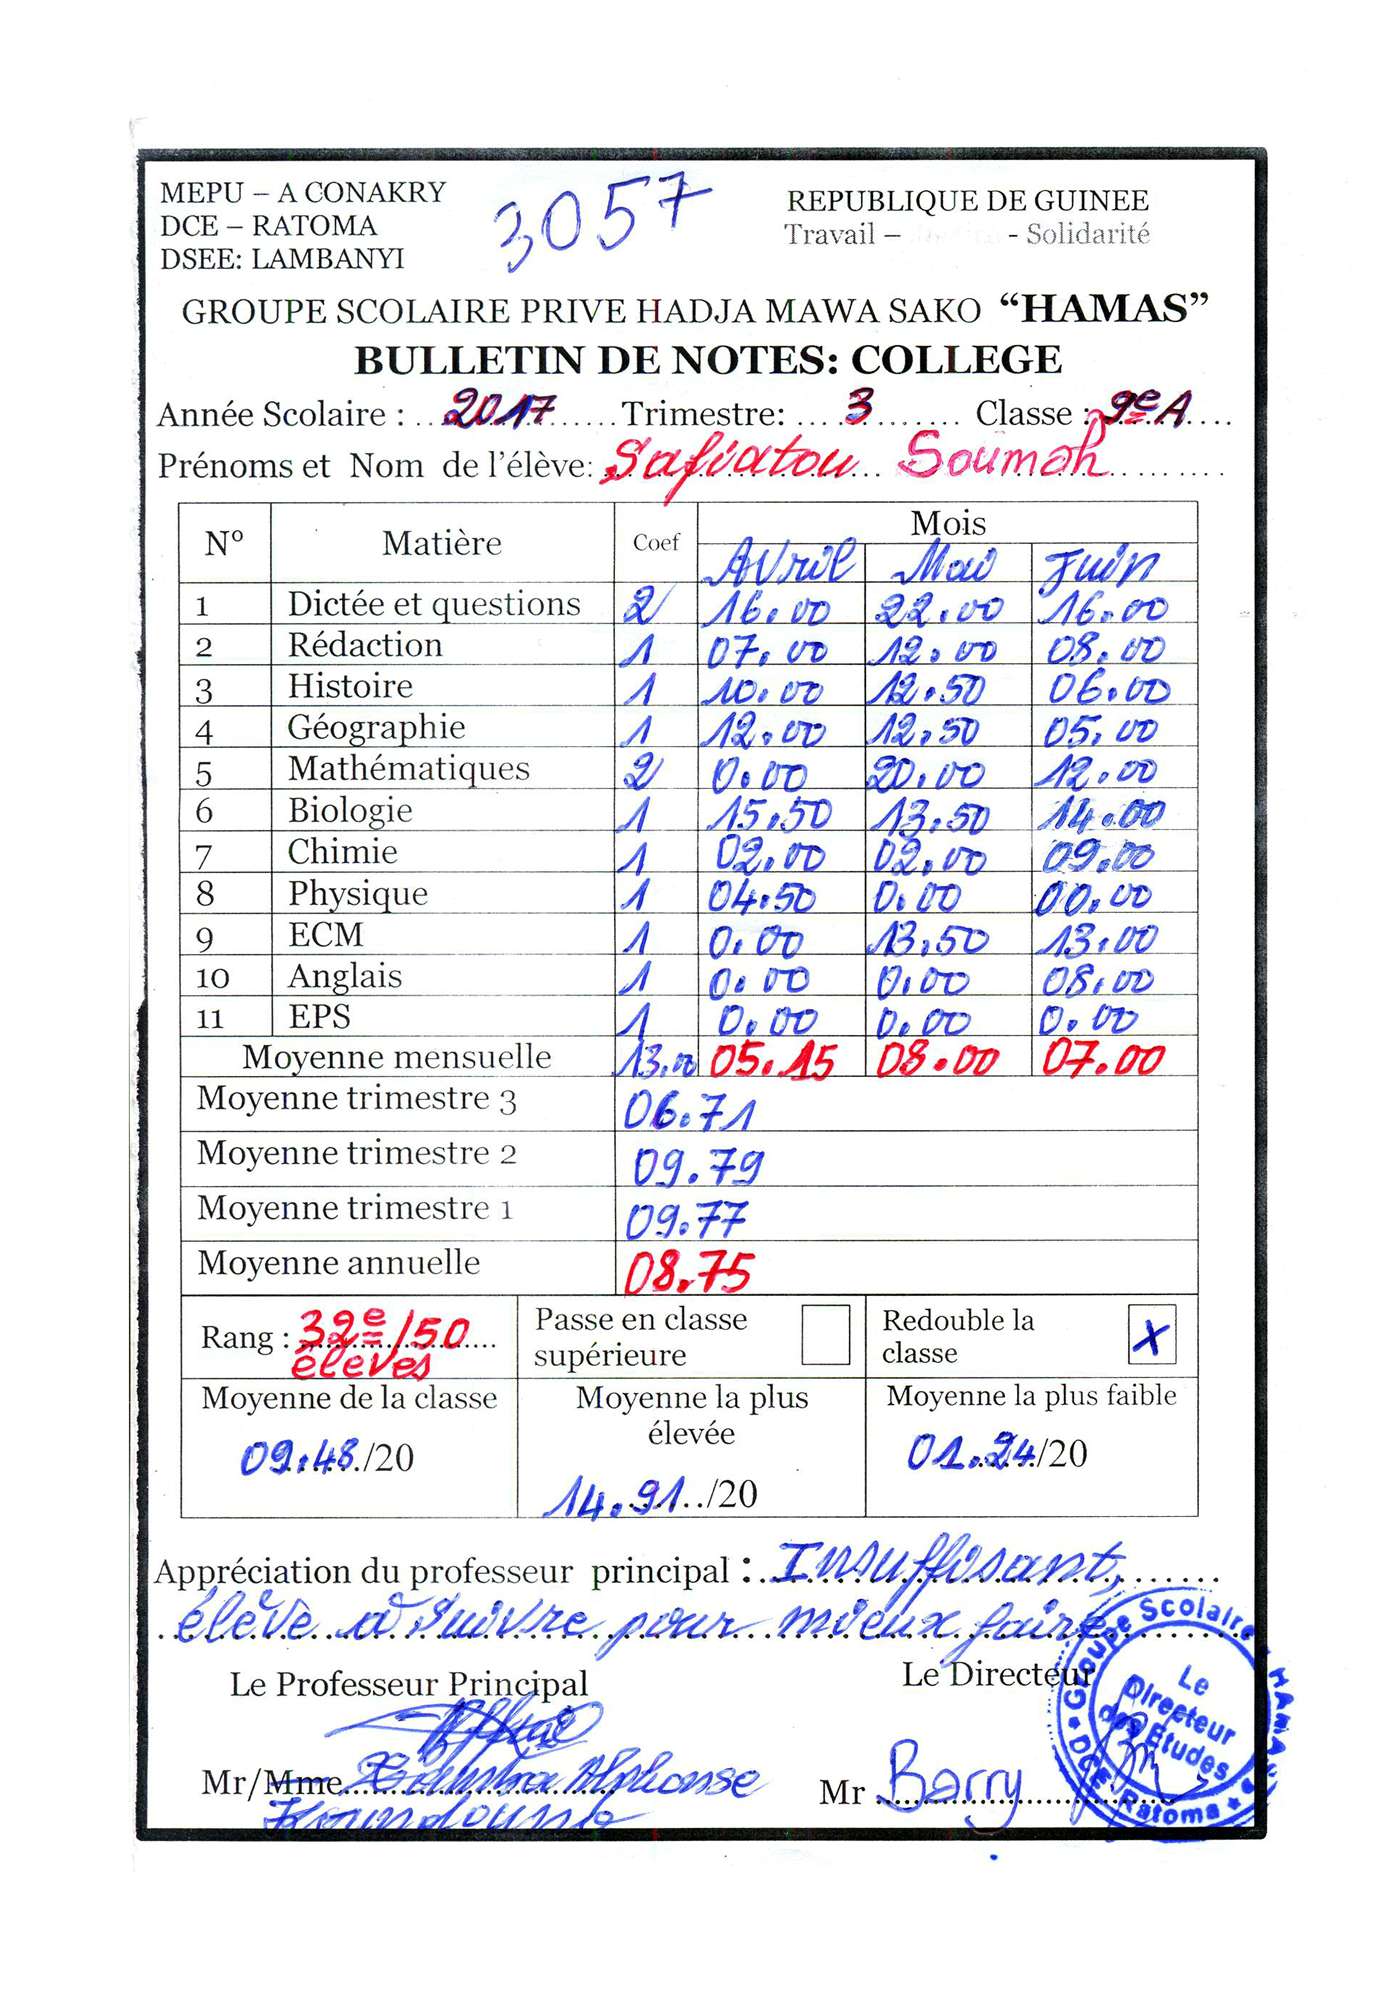 MEPU – A CONAKRY
DCE – RATOMA
DSEE: LAMBANYI
3057
REPUBLIQUE DE GUINEE
Travail – - Solidarité
GROUPE SCOLAIRE PRIVE HADJA MAWA SAKO “HAMAS”
BULLETIN DE NOTES: COLLEGE
Année Scolaire : 2017 Trimestre: 3 Classe : 9e A
Prénoms et Nom de l'élève: Safiatou Soumah
N° Matière Coef Mois
Avril Mai Juin
1 Dictée et questions 2 16.00 22.00 16.00
2 Rédaction 1 07.00 12.00 08.00
3 Histoire 1 10.00 12.50 06.00
4 Géographie 1 12.00 12.50 05.00
5 Mathématiques 2 0.00 20.00 12.00
6 Biologie 1 15.50 13.50 14.00
7 Chimie 1 02.00 02.00 09.00
8 Physique 1 04.50 0.00 00.00
9 ECM 1 0.00 13.50 13.00
10 Anglais 1 0.00 0.00 08.00
11 EPS 1 0.00 0.00 0.00
Moyenne mensuelle 13.00 05.15 08.00 07.00
Moyenne trimestre 3 06.71
Moyenne trimestre 2 09.79
Moyenne trimestre 1 09.77
Moyenne annuelle 08.75
Rang : 32e/50
élèves
Passe en classe
supérieure
Redouble la
classe X
Moyenne de la classe
09.48/20
Moyenne la plus
élevée
14.91/20
Moyenne la plus faible
01.24/20
Appréciation du professeur principal : Insuffisant,
élève à suivre pour mieux faire.
Le Professeur Principal
Le Directeur
Mr/Mme Alphonse
Mr Barry
Groupe Scolaire HAMAS
Le
Directeur
des Etudes
DCE Ratoma